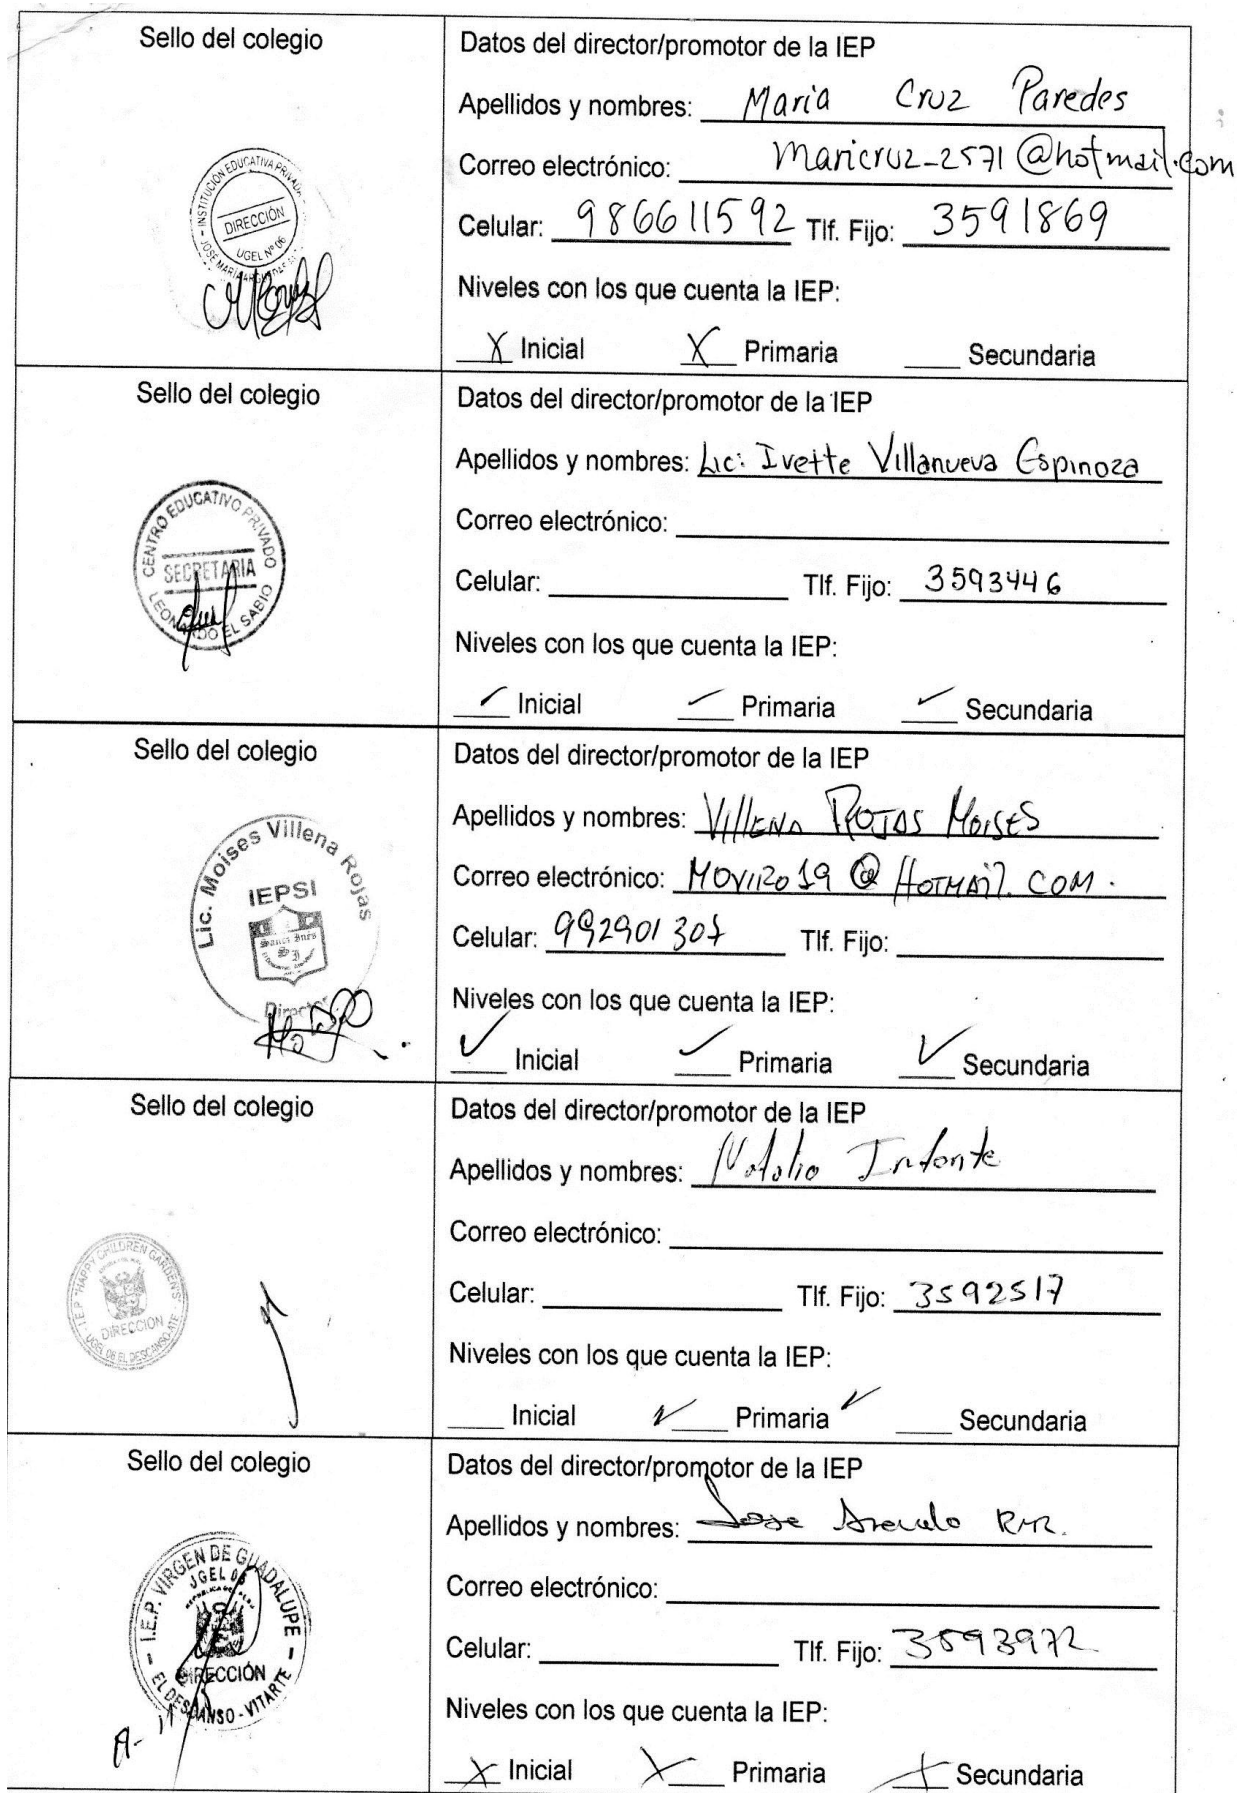 Sello del colegio
INSTITUCIÓN EDUCATIVA PRIVADA
DIRECCIÓN
UGEL Nº 06
JOSE MARÍA
Datos del director/promotor de la IEP
Apellidos y nombres: Maria Cruz Paredes
Correo electrónico: Maricruz_2571@hotmail.com
Celular: 986611592 Tlf. Fijo: 3591869
Niveles con los que cuenta la IEP:
X Inicial X Primaria Secundaria
Sello del colegio
CENTRO EDUCATIVO PRIVADO
SECRETARIA
LEONARDO EL SABIO
Datos del director/promotor de la IEP
Apellidos y nombres: Lic: Ivette Villanueva Espinoza
Correo electrónico:
Celular: Tlf. Fijo: 3593446
Niveles con los que cuenta la IEP:
✓ Inicial ✓ Primaria ✓ Secundaria
Sello del colegio
Lic. Moises Villena Rojas
IEPSI
Santa Inés
SI
Director
Datos del director/promotor de la IEP
Apellidos y nombres: Villena Rojas Moises
Correo electrónico: MOVIRO19@HOTMAIL.COM.
Celular: 992901307 Tlf. Fijo:
Niveles con los que cuenta la IEP:
✓ Inicial ✓ Primaria ✓ Secundaria
Sello del colegio
I.E.P "HAPPY CHILDREN GARDEN'S"
DIRECCION
UGEL 06 EL DESCANSO-ATE
Datos del director/promotor de la IEP
Apellidos y nombres: Natalio Infante
Correo electrónico:
Celular: Tlf. Fijo: 3592517
Niveles con los que cuenta la IEP:
Inicial ✓ Primaria ✓ Secundaria
Sello del colegio
I.E.P. VIRGEN DE GUADALUPE
UGEL 06
DIRECCIÓN
EL DESCANSO - VITARTE
Datos del director/promotor de la IEP
Apellidos y nombres: Jose
Correo electrónico:
Celular: Tlf. Fijo: 3593972
Niveles con los que cuenta la IEP:
X Inicial X Primaria X Secundaria